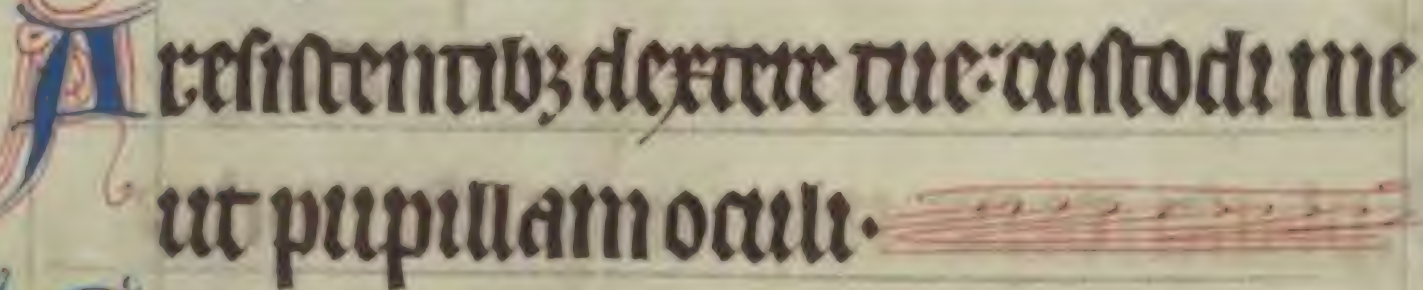 A resistentibꝫ dextere tue: custodi me
ut pupillam oculi.